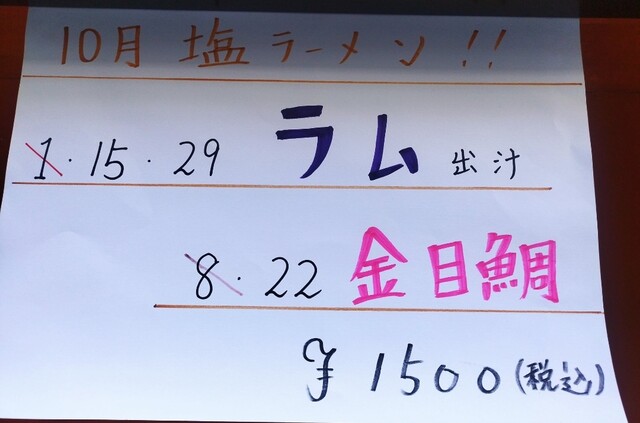 10月 塩ラーメン!!
1・15・29 ラム出汁
8・22 金目鯛
¥1500(税込)